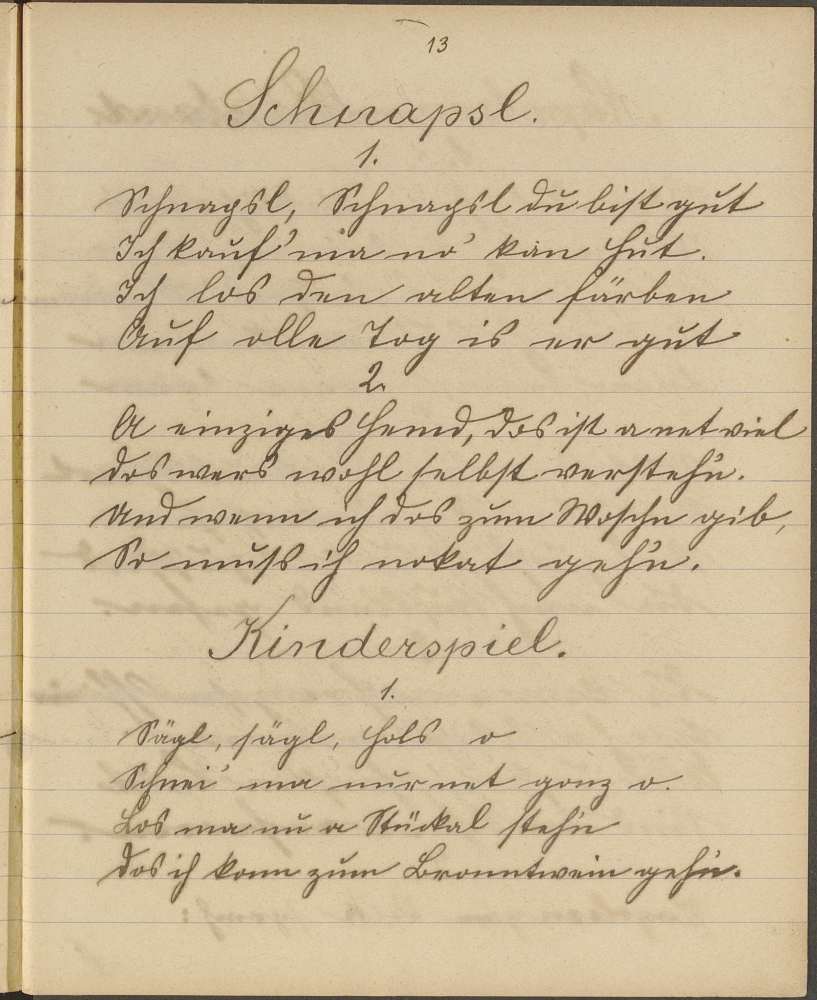 13
Schnapsl.
1.
Schnapsl, Schnapsl du bist gut
Ich kauf' mia no' kän Hut.
Ich los den alten färben
Auf olle Tog is er gut
2.
A einziges Hemd, dos ist a net viel
dos wers wohl selbst versteh'n.
Und wenn ich dos zum Woschn gib,
So muss ich nokat geh'n.
Kinderspiel.
1.
Sägl, sägl, Hols o
Schnei' ma nur net gonz o.
Los ma nu a Stückal steh'n
Dos ich konn zum Bronntwein geh'n.